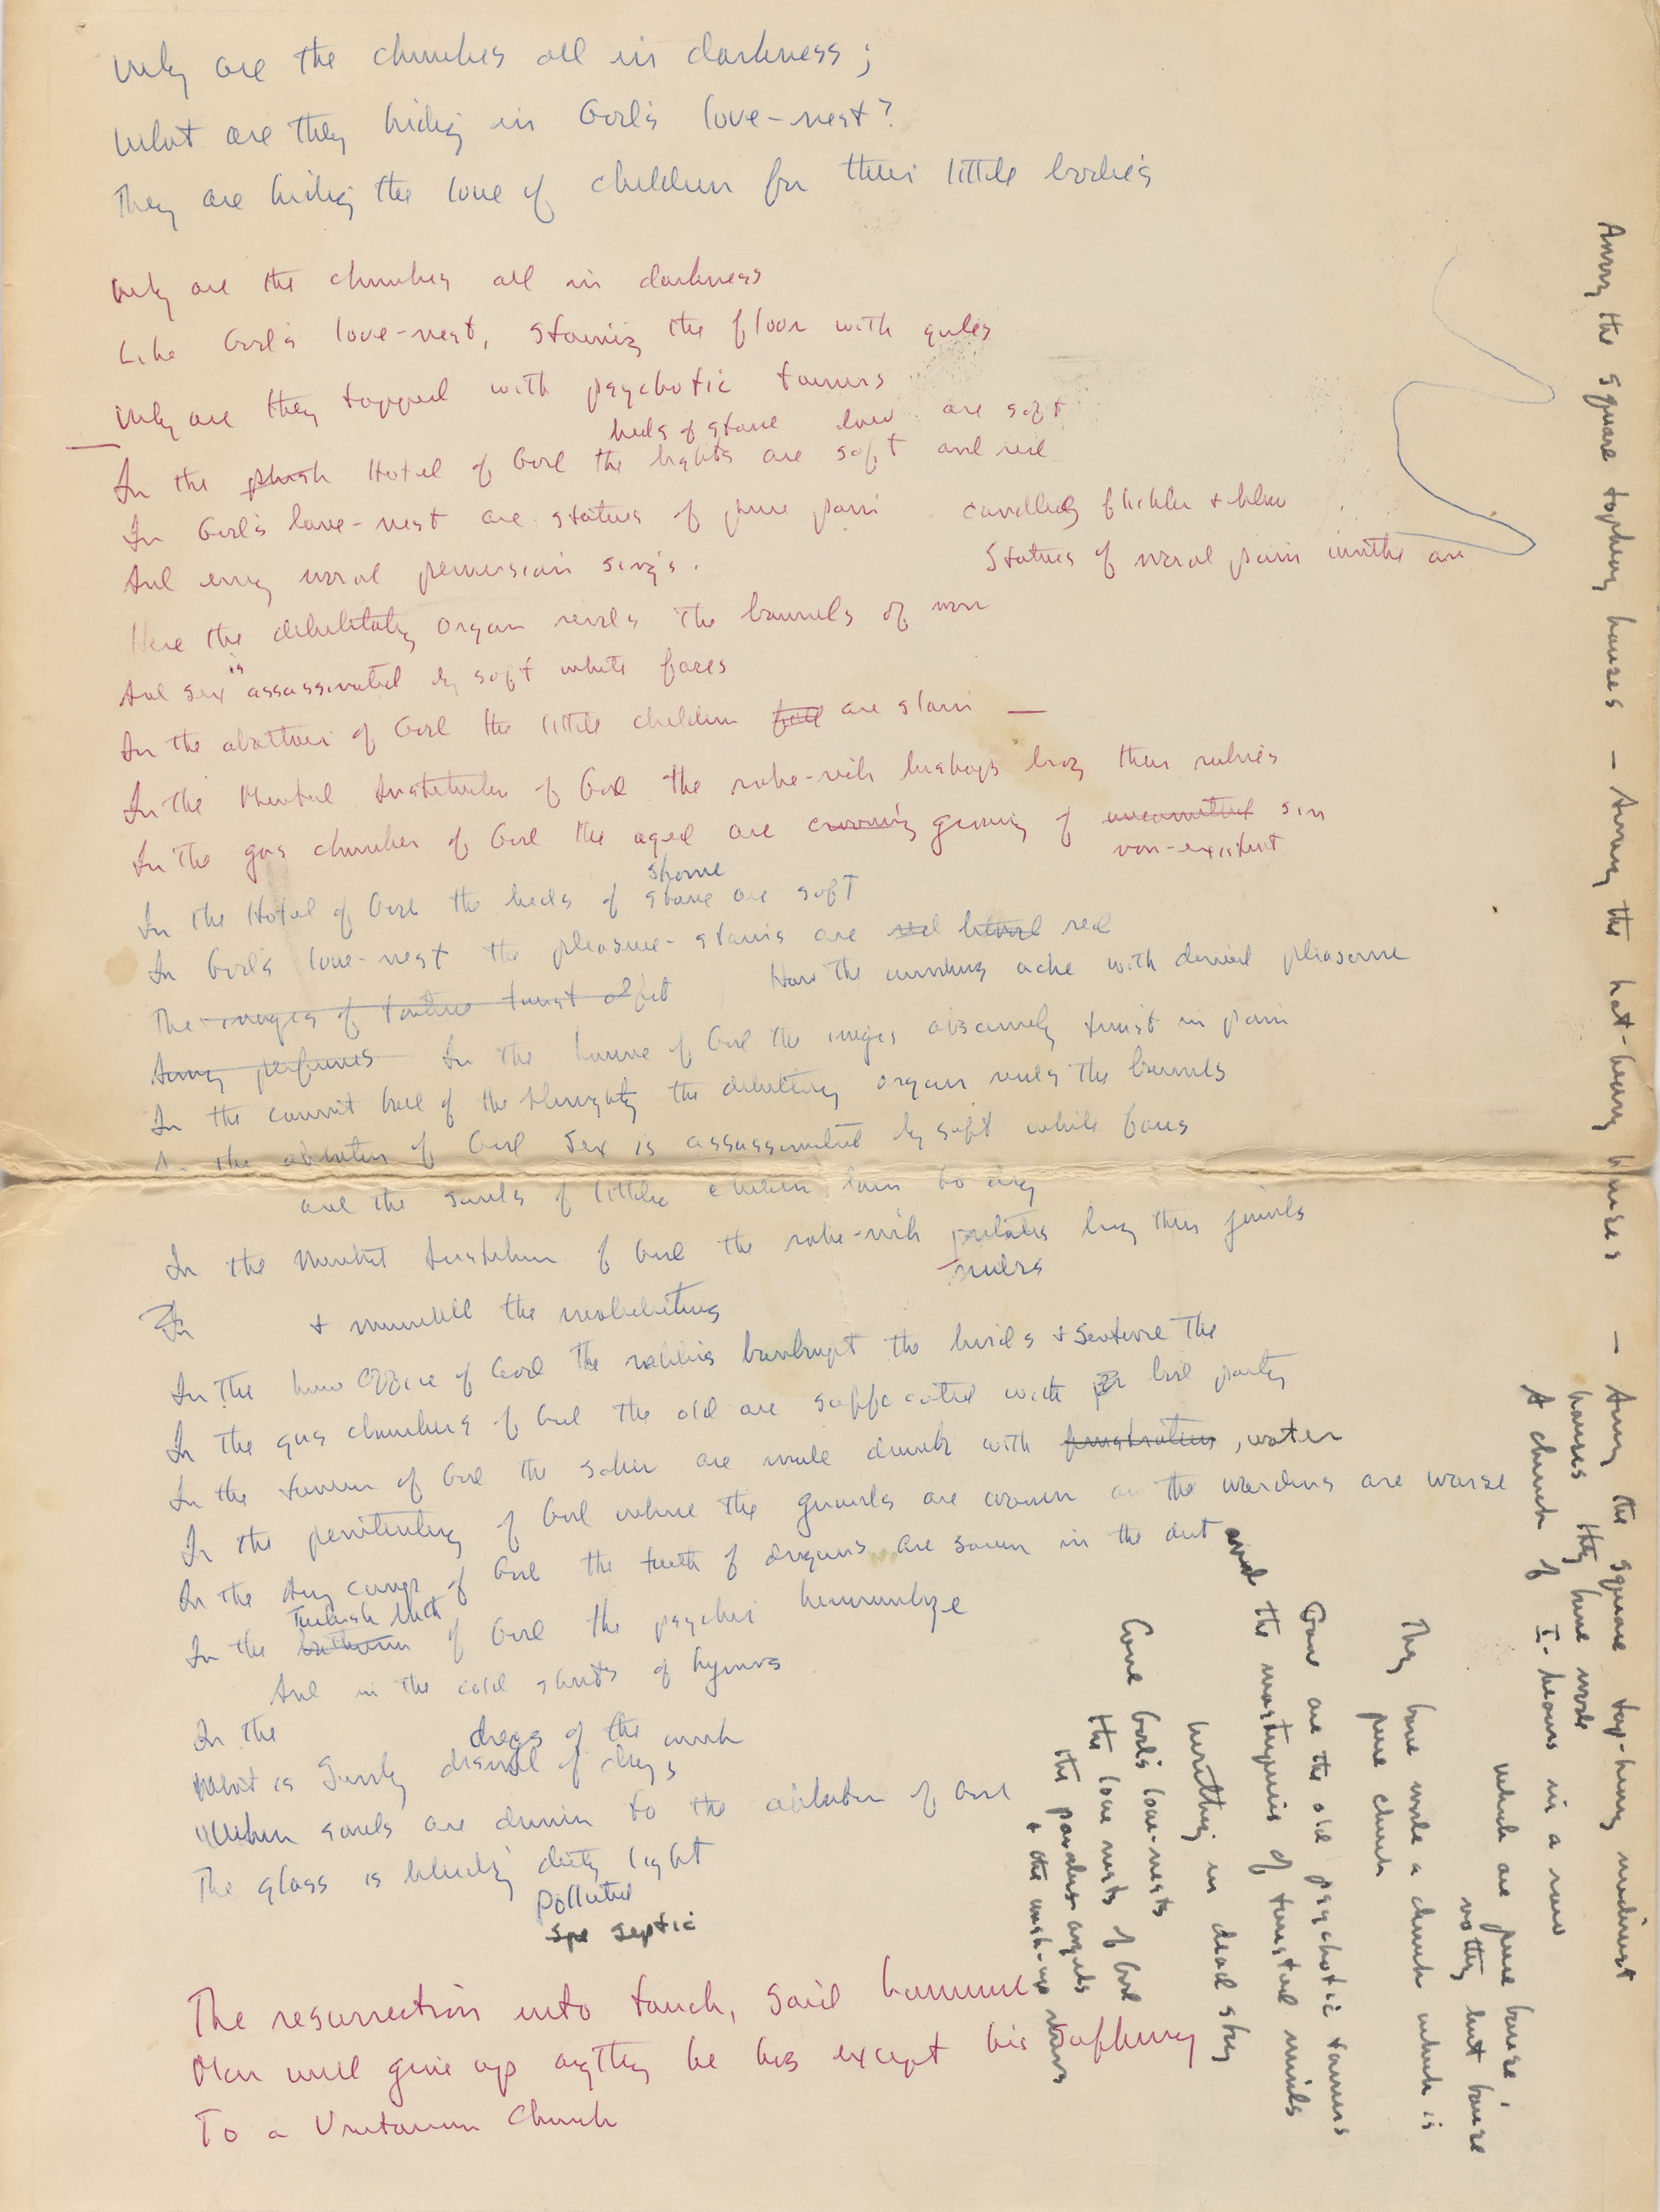 Why are the churches all in darkness;
What are they hiding in God's love-nest?
They are hiding the love of children for their little bodies
Why are the churches all in darkness
Like God's love-nest, staining the floor with gules
Why are they topped with psychotic towers
beds of stone are soft
In the plush Hotel of God the lights are soft and red
In God's love-nest are statues of pure pain
candles flicker + blow
And every moral perversion sings.
Statues of moral pain writhe an
Here the debilitating organ rends the bowels of man
And sex is assassinated by soft white faces
In the abattoir of God the little children fall are slain —
In the Mental Institution of God the robe-rich bishops hug their rubies
In the gas chamber of God the aged are crooning groaning of uncommitted sin
non-existent
shame
In the Hotel of God the beds of stone are soft
In God's love-nest the pleasure-stains are red blood red
The images of torture twist
How the ache with denied pleasure
Among perfumes In the house of God the images obscenely twist in pain
In the concert hall of the Almighty the debilitating organ rends the bowels
In the abbatoir of God Sex is assassinated by soft white faces
and the souls of little children born to die
In the Mental Institution of God the robe-rich prelates hug their jewels
rubies
In + the
In the law office of God the rabbis bankrupt the + sentence the
In the gas chambers of God the old are suffocated with bad poetry
In the tavern of God the sober are made drunk with frustration, water
In the penitentiary of God where the guards are craven the wardens are worse
In the army camp of God the teeth of dragons are sown in the dirt
Turkish bath
In the bathroom of God the psyches hemorrhage
And in the cold sheets of hymns
In the
dregs of the
What is Sunday dismal of days
When souls are driven to the abbatoir of God
The glass is bleeding dirty light
polluted
Spe septic
The resurrection into touch, said
Man will give up anything he has except his suffering
To a Unitarian Church
Among the square topheavy houses — Among the hat-heavy houses — Among the square top-heavy modernist
houses they have made
A church of I-beams in a row
which are pure house,
nothing but house
They have made a church which is
pure church
Gone are the old psychotic towers
and the masterpieces of tortured minds
writhing in dead sky
Gone God's love-nests
the love nests of God
the powderless angels
+ the